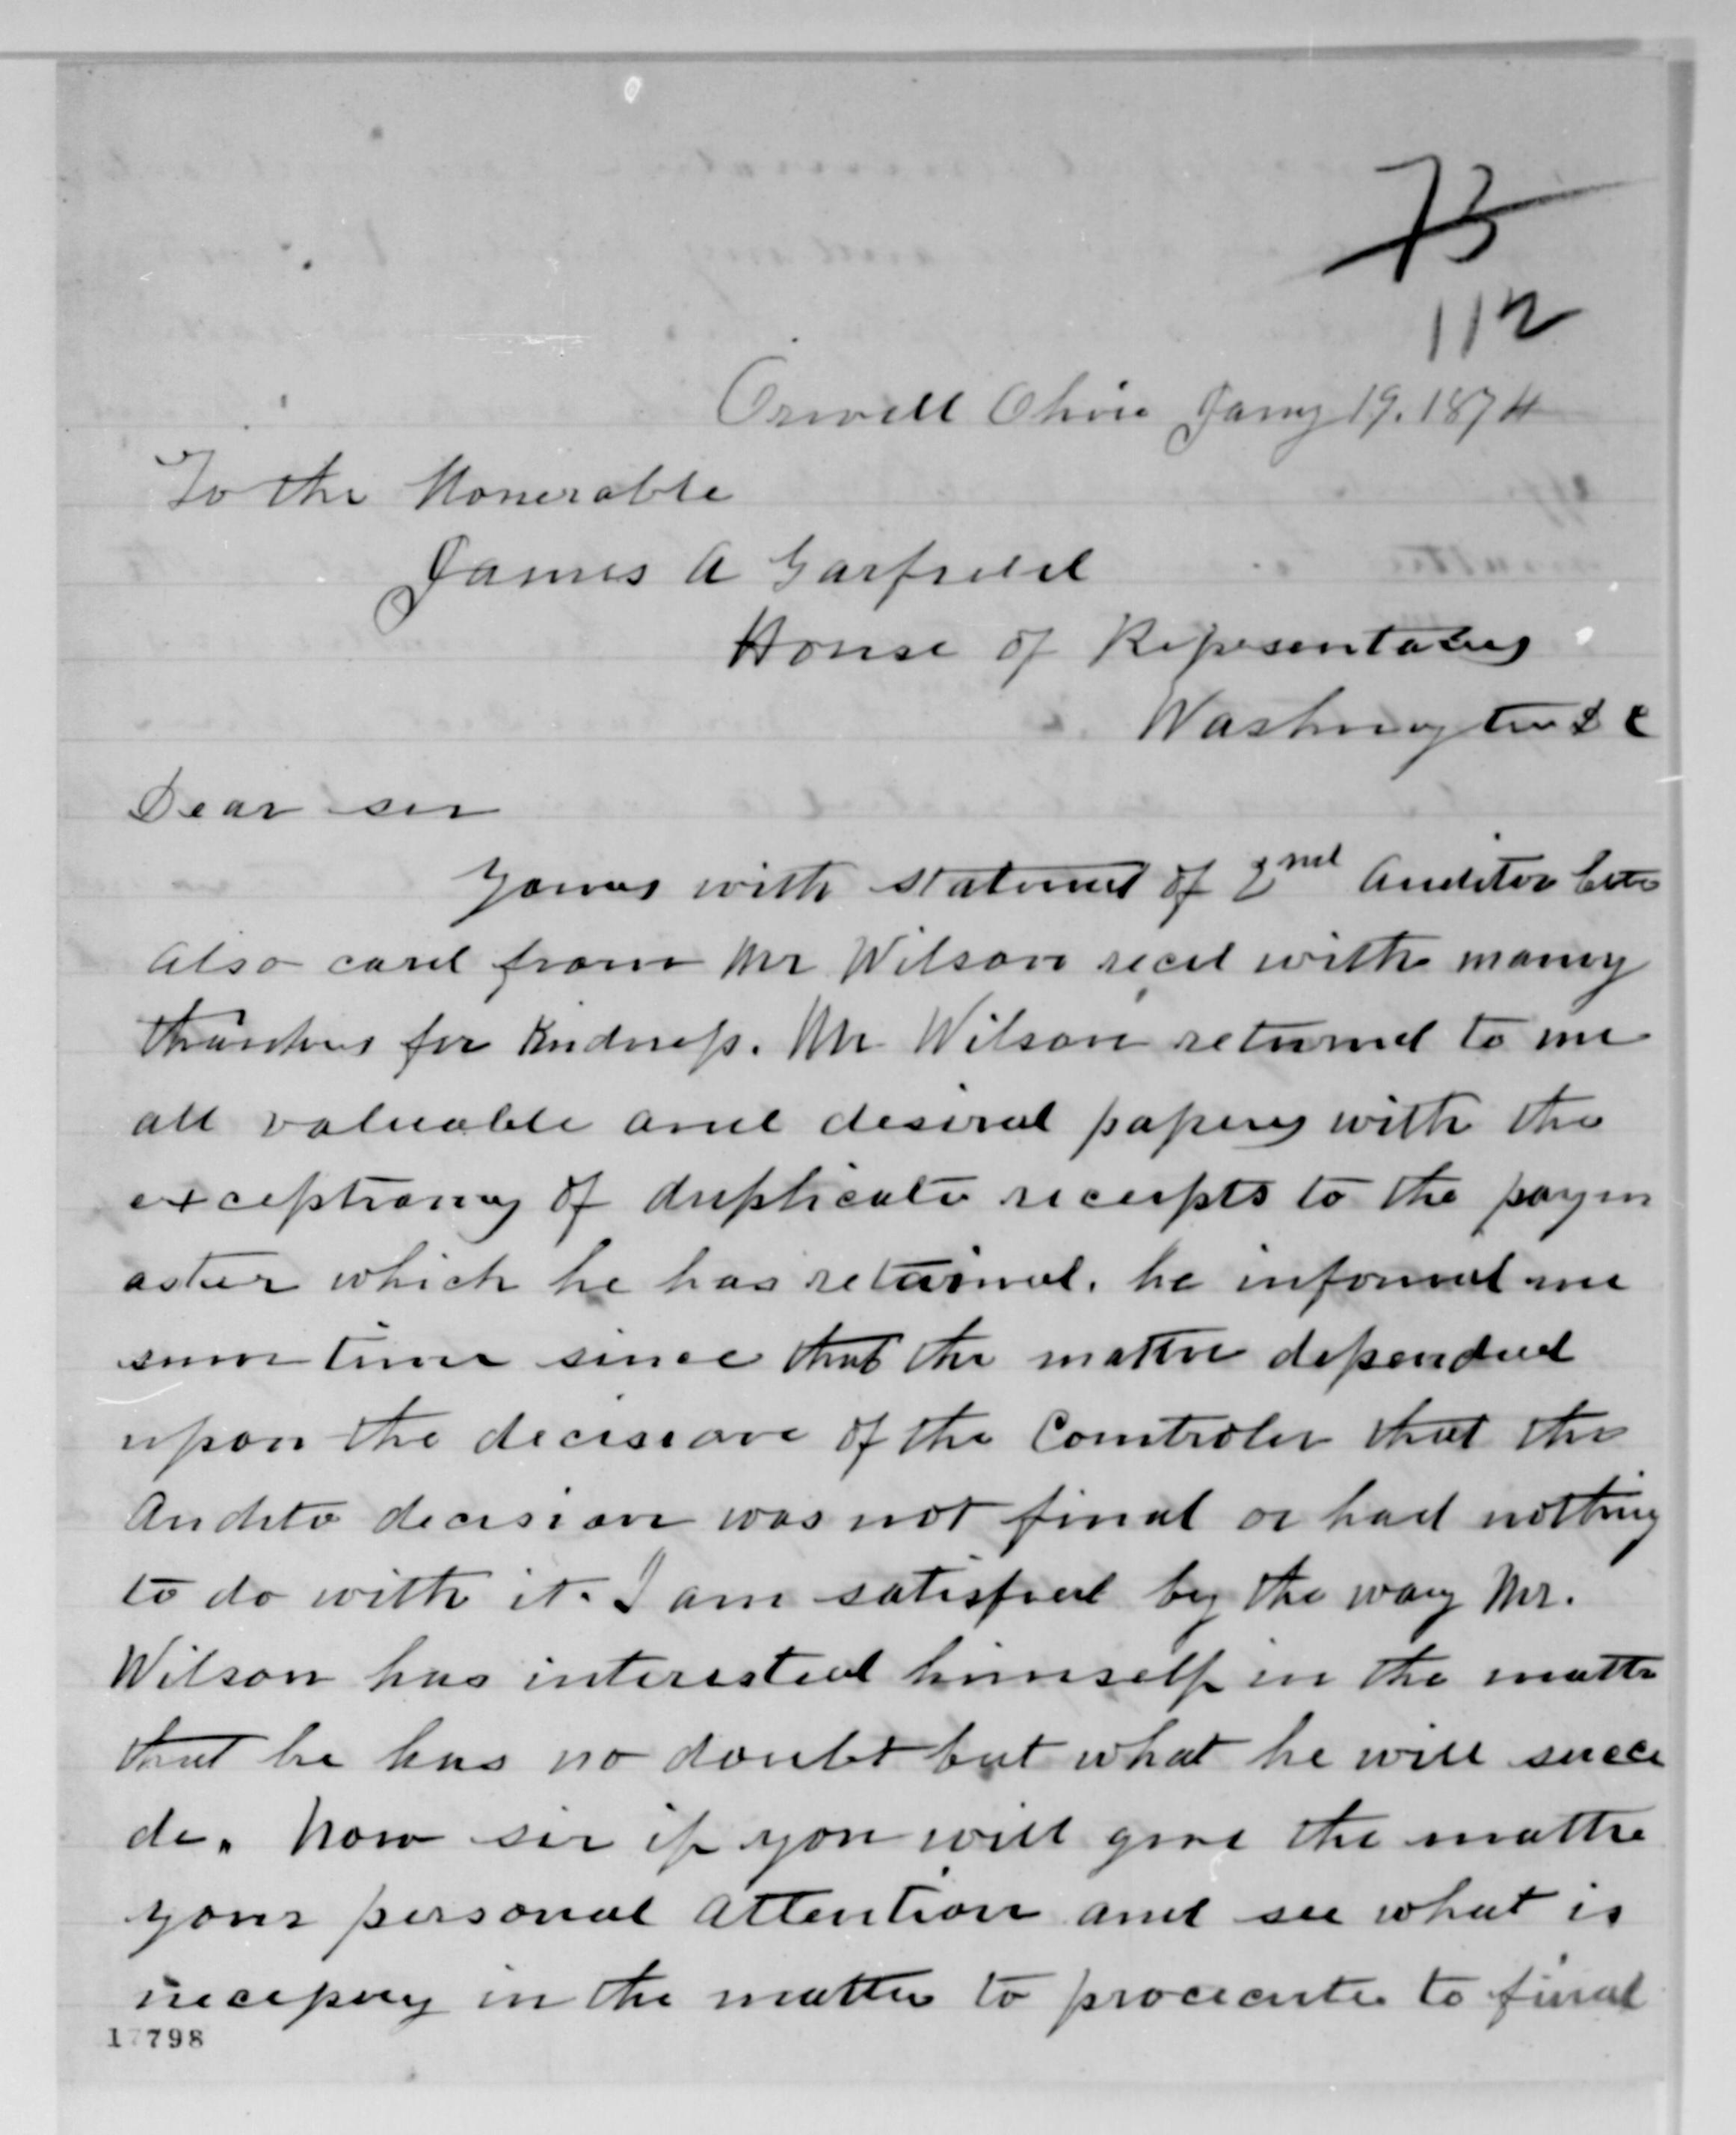 73
112
Orwell Ohio Jany 19. 1874
To the Honerable
James A Garfield
House of Representatives
Washington D C
Dear sir
Yours with statement of 2nd Auditor Etc
Also card from Mr Wilson recd with many
thanks for kindness. Mr Wilson returned to me
all valuable and desired papers with the
exceptions of duplicate receipts to the paym
aster which he has retained. he informed me
some time since that the matter depended
upon the decision of the Comtroler that the
Audito decision was not final or had nothing
to do with it. I am satisfied by the way Mr.
Wilson has interested himself in the matter
that he has no doubt but what he will succe
de. Now sir if you will give the matter
your personal attention and see what is
necessary in the matter to prosecute to final
17798